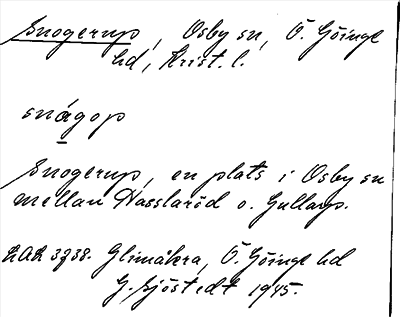 Snogerup, Osby sn, Ö. Göinge
hd, Krist. l.
snågop
Snogerup, en plats i Osby sn
mellan Hasslaröd o. Gullarp.
LAL 3238. Glimåkra, Ö. Göinge hd
G. Sjöstedt 1945.